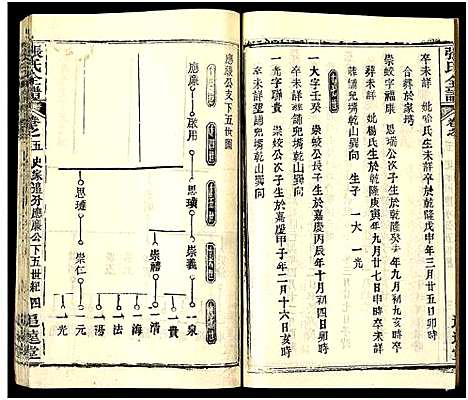 張氏全譜
卒未詳 妣徐氏生未詳卒於乾隆戊申年三月廿五日卯時
合葬於家塝
崇蛟字福康 思瑥公次子生於乾隆癸年九月初九亥時
妣楊氏生於乾隆庚寅年九月廿七日申時卒未詳
葬舖兒塆乾山巽向 生子 一大 一光
一大字壬癸 崇蛟公長子生於嘉慶丙辰年十月初四日卯時
卒未詳葬舖兒塆乾山巽向
一光字聯貴 崇蛟公次子生於嘉慶甲子年二月十六日亥時
卒未詳墓塆乾山巽向
應嚴公支下五世圖
應嚴
啟用
思瓊
思璉
崇義
崇禮
崇仁
一泉
一貴
一清
一海
一法
一陽
一元
一光
張氏全譜
卷之五
史家追分應嚴公下五世紀
四
追遠堂